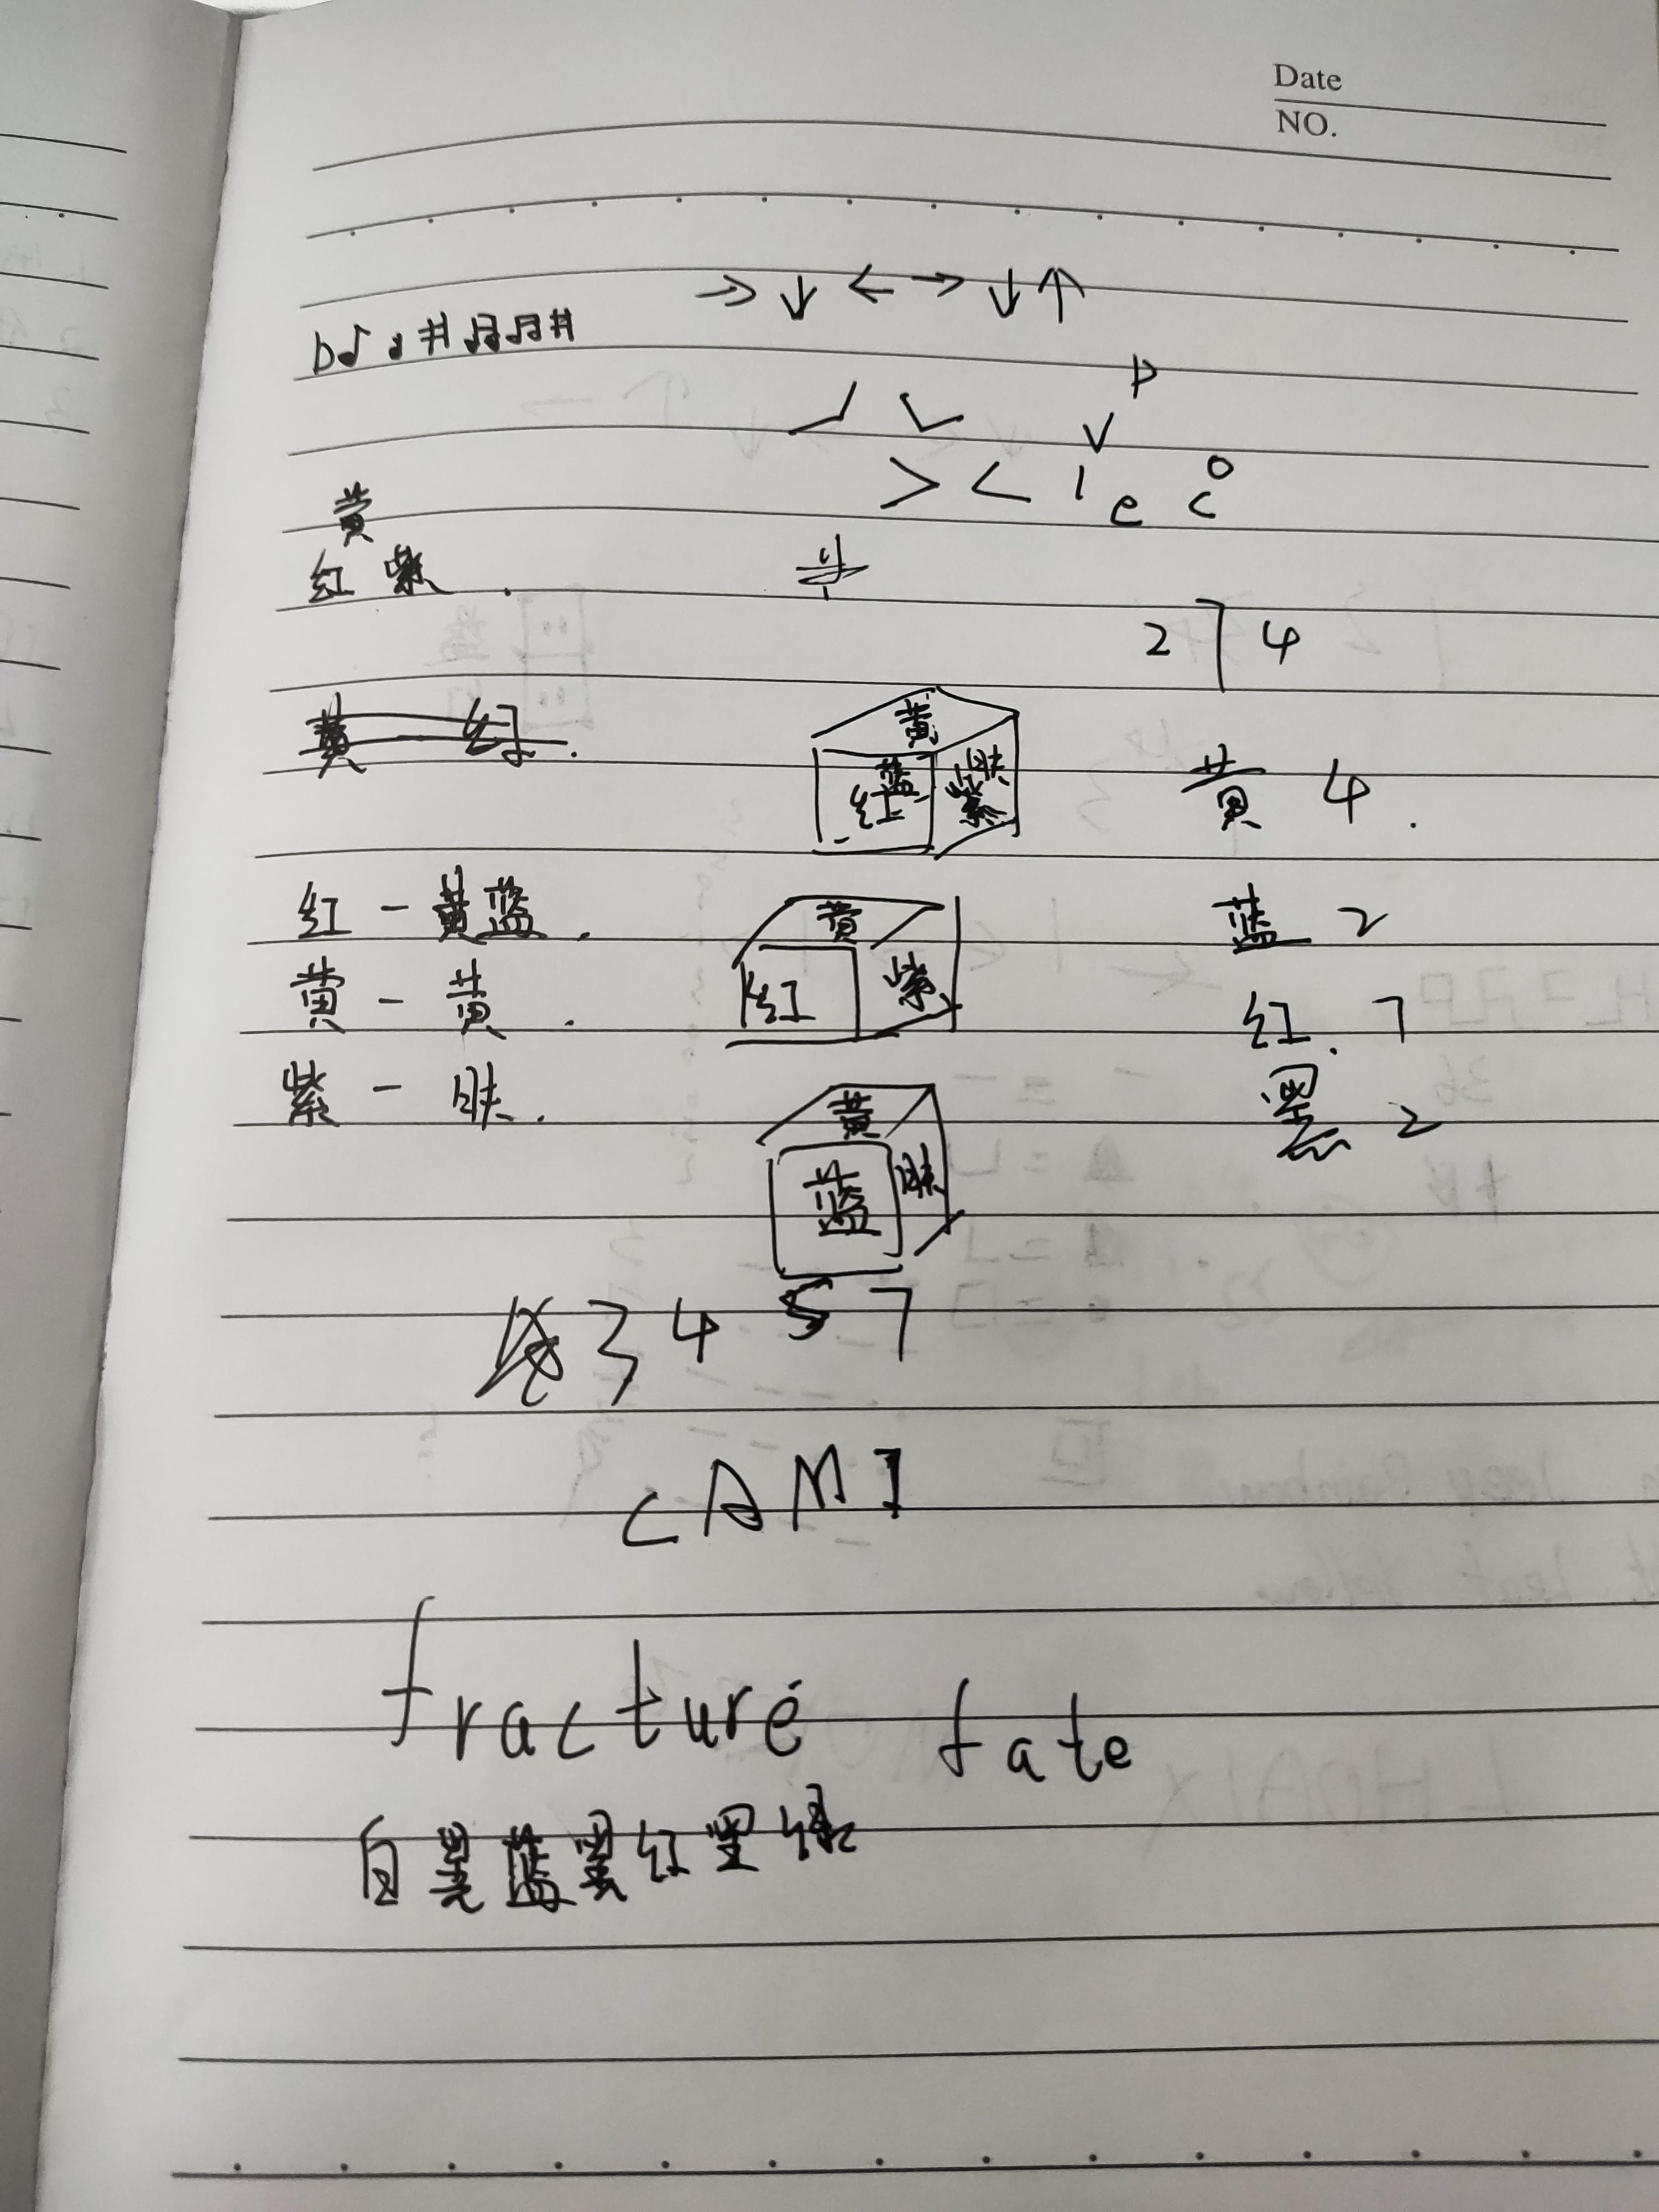 Date
NO.
→ ↓ ← → ↓ ↑
b♪ ♩ # ♫ ♫ #
P
V
> < 1 e c o
黄
红 紫 .
2 7 4
黄 — 红 .
黄
红 蓝 紫 肤
黄 4 .
红 - 黄蓝 .
黄
红 紫
蓝 2
黄 - 黄 .
红 . 7
紫 - 肤 .
黄
蓝 肤
黑 2
3 4 5 7
CAMI
fracture fate
白黑蓝黑红黑绿